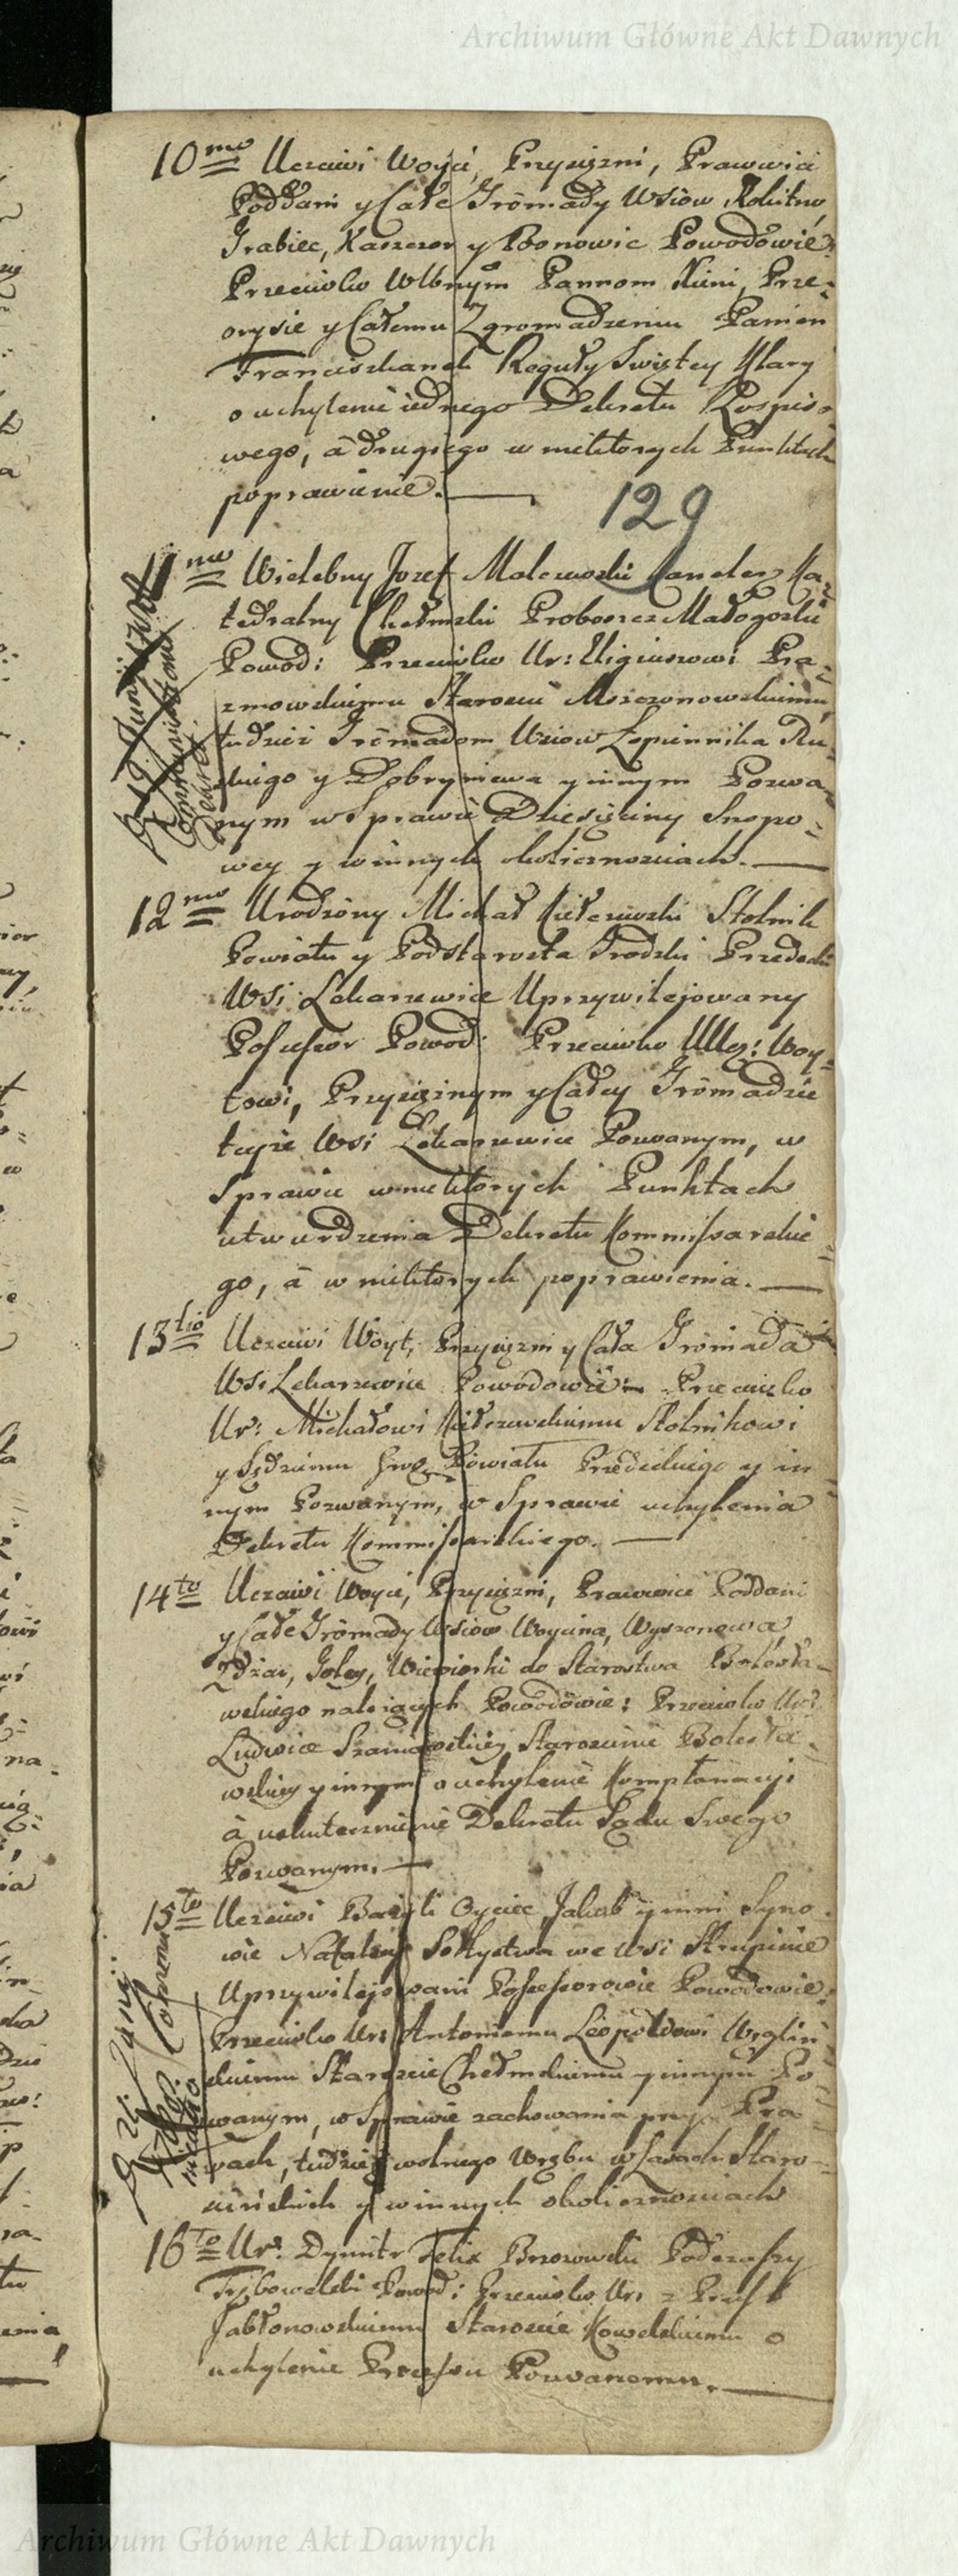 Archiwum Główne Akt Dawnych
10mo Uczciwi Woyci, Przysiężni, Prawowici
Poddani y Całe Grômady Wsiow Rokitno,
Grabiec, Kaszczor y Powodowie
Przeciwko Wlbnym Pannom Xieni, Prze-
orysie y Całemu Zgromadzeniu Panien
Franciszkanek Reguły Swiętey Klary
o uchylenie iednego Dekretu Rospiso-
wego, á drugiego w niektorych Punktach
poprawienie.
129
11mo Wielebny Jozef Malczewski Kanclerz Ka-
tedralny Chełmski Proboszcz Małogoski
Powod: Przeciwko Ur: Eligiuszowi Pra-
zmowskiemu Staroscie Mszczonowskiemu,
tudzież Grômadom Wsiow Łopiennika Ru-
skiego y Dobryniewa y innym Pozwa-
nym w Sprawie Dziesięciny Snopo-
wey y w innych okolicznosciach.
12mo Urodzony Michał Kiełczewski Stolnik
Powiatu y Podstarosta Grodzki Przedecki
Wsi Lekarzewice Uprzywilejowany
Possessor Powod: Przeciwko UUcz: Woy-
towi, Przysiężnym y Całey Grômadzie
teyże Wsi Lekarzewice Pozwanym, w
Sprawie w niektorych Punktach
utwierdzenia Dekretu Kommissarskie-
go, á w niektorych poprawienia.
13tio Uczciwi Woyt, Przysiężni y Cała Grômada
Wsi Lekarzewice Powodowie Przeciwko
Ur: Michałowi Kiełczewskiemu Stolnikowi
y Sędziemu Powiatu Przedeckiego y in-
nym Pozwanym, w Sprawie uchylenia
Dekretu Kommissarskiego.
14to Uczciwi Woyci, Przysiężni, Prawowici Poddani
y Całe Grômady Wsiow Woycina, Wyszonowa
Zdżar, Goley, Wiewiorki do Starostwa Bolesła-
wskiego należących Powodowie: Przeciwko Ur:
Ludwice Staroscinie Bolesła-
wskiey y innym o uchylenie Komplanacyi
á uskutecznienie Dekretu Sądu Swego
Pozwanym.
15to Uczciwi Bazyli Oyciec, Jakub y inni Syno-
wie Sołtystwa we Wsi Strupinie
Uprzywilejowani Possessorowie Powodowie:
Przeciwko Ur: Antoniemu Leopoldowi Węgliń-
skiemu Staroscie Chełmskiemu y innym Po-
zwanym, w Sprawie zachowania przy Pra-
wach, tudzież wolnego Wrębu w Lasach Staro-
scińskich y w innych okolicznosciach
16to Ur: Dymitr Felix Brzozowski Podczaszy
Powod: Przeciwko Ur:
Jabłonowskiemu Staroscie Kowelskiemu o
uchylenie Processu Pozwanemu.
Archiwum Główne Akt Dawnych